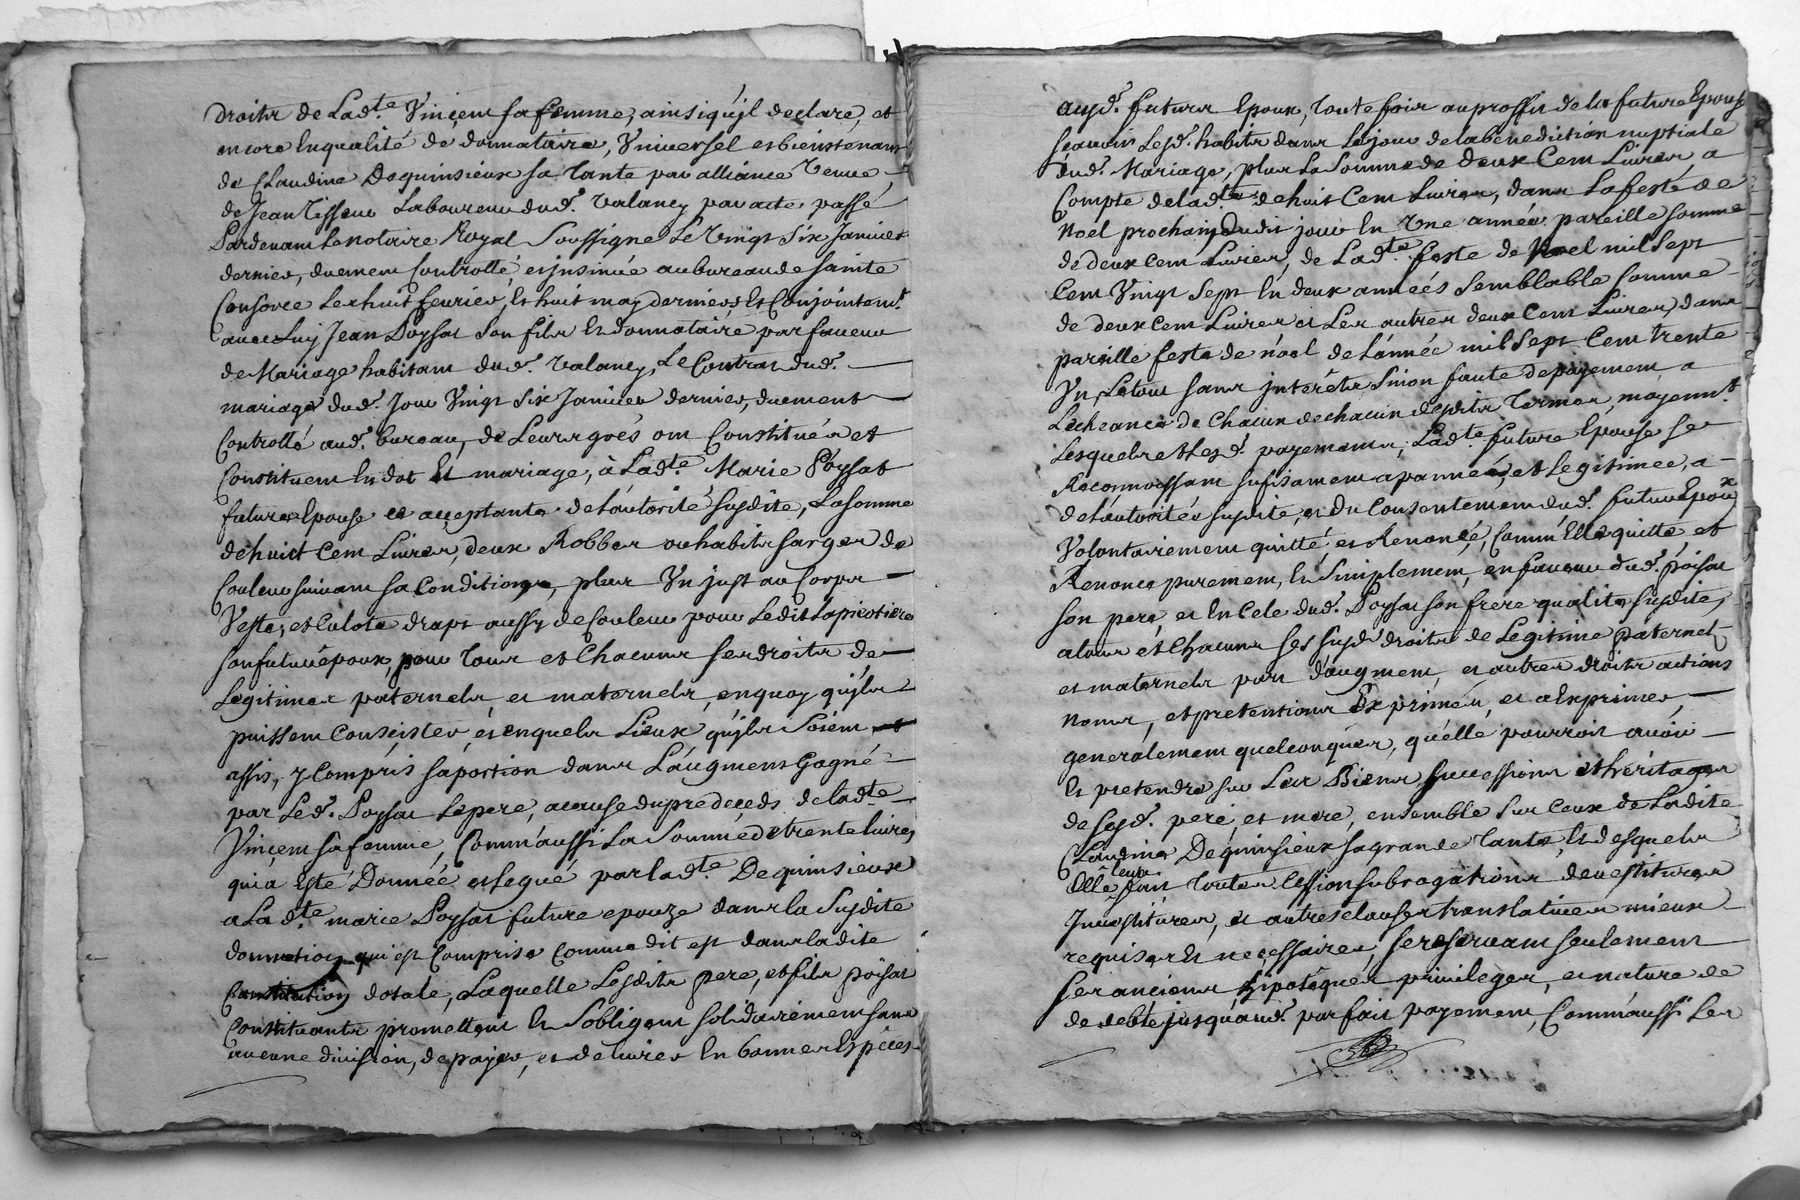 droits de Lad.te Vinçent sa femme, ainsi qu'jl declare, et
encore En qualité de donnataire, Vniversel et bienstenant
de Claudine Dequinsieux sa Tante par alliance Veuve
de Jean Tisseur Laboureur dud.t Valancy par acte passé
Pardevant Le notaire Royal Soussigné Le Vingt Six Janvier
dernier, duement Controllé, et jnsinué au bureau de Sainte
Consorce Les huit fevrier, Et huit may derniers Et Conjointem.t
avec Luy Jean Poysat Son fils Et donnataire par faveur
de Mariage habitant dud.t Valancy, Le Contrat dud.t
mariage dud.t Jour Vingt Six Janvier dernier, duement
Controllé aud.t bureau, de Leurs grés ont Constitués et
Constituent En dot Et mariage, à Lad.te Marie Poysat
future Epouse et acceptante de L'autorité Susdite, La somme
de huict Cent Livres, deux Robbes ou habits sarges de
Couleur suivant sa Condition, plus Vn just au Corps
Veste, et Culote drapt aussy de Couleur pour Ledit Lapicotiere
son futur époux, pour Tous et Chacuns ses droits de
Legitimes paternels, et maternels, en quoy qu'jls
puissent Consister, et en quels Lieux qu'jls Soient
assis, y Compris sa portion dans L'augment Gagné
par Led.t Poysat Le pere, a cause du predeceds de lad.te
Vinçent sa femme, Comm'aussi La Somme de trente livres
qui a Esté Donnée et legué par lad.te Dequinsieux
a Lad.te marie Poysat future epouze dans la Susdite
donnation qui est Comprise Comme dit est dans la dite
Constitution dotale, Laquelle Lesdits pere, et fils poysat
Constituants promettent Et S'obligent solidairement sans
aucune division, de payer, et delivrer En bonnes Espèces
ausd.t futurs Epoux, Toute fois au proffit de la future Epouse
sçavoir Lesd.t habits dans Le jour de la bénediction nuptiale
dud.t Mariage, plus La Somme de deux Cent Livres a
Compte de lad.te de huit Cent Livres, dans La feste de
Noel prochain dudit jour En Vne année pareille somme
de deux Cent Livres, de Lad.te feste de Noel mil Sept
Cent Vingt Sept En deux années Semblable Somme
de deux Cent Livres et Les autres deux Cent Livres, dans
pareille feste de nöel de L'année mil Sept Cent trente
Vn, Le tout sans jnterêts Sinon faute de payement a
L'echeance de Chacun de chacun desdits Termes, moyenn.t
Lesquels et Lesd.t payements, Lad.te future Epouse se
Reconnoissant sufisament apannée, et Legitimee, a
de L'autorité susdite, et du Consentement dud.t futur Epoux
Volontairement quitté et Renoncé, Comm'Elle quitte, et
Renonce purement, En Simplement, en faveur dud.t poisat
son pere, et En Cele dud.t Poysat son frere qualité susdite,
a tous et Chacuns ses susd.t droits de Legitime paternel
et maternels part d'augment, et autres droits actions
Noms, et pretentions Exprimés, et a Exprimer,
generalement quelconques, qu'elle pourroit avoir
Et pretendre sur Les Biens, successions et héritages
de sesd.t pere, et mere, ensemble sur Ceux de Ladite
Claudine Dequinsieux sa grande Tante, Et desquels
Elle leur fait Toutes Cession subrogations devestitures
Jnvestitures, et autres clauses translatives mieux
requises Et necessaires, se reservant seulement
ses anciens hipotéques privileges, et nature de
de debte jusqu'aud.t parfait payement, Comm'aussi Les